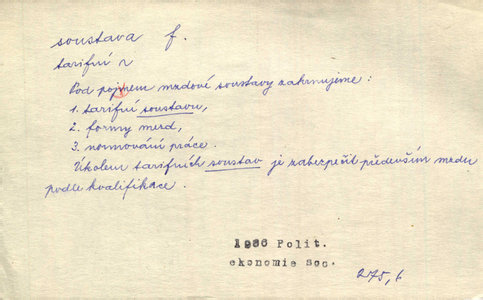 soustava f.
tarifní
Pod pojmem mzdové soustavy zahrnujeme:
1. tarifní soustavu,
2. formy mezd,
3. normování práce.
Úkolem tarifních soustav je zabezpečit především mzdu
podle kvalifikace.
1986 Polit.
ekonomie Soc.
275, b